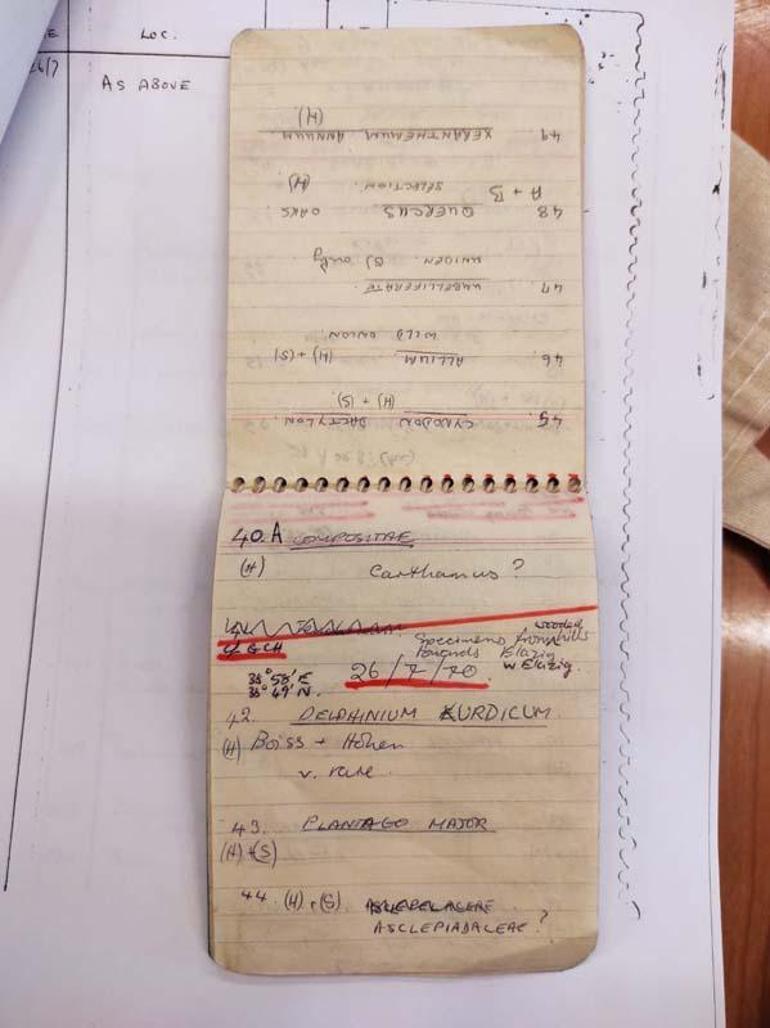 LOC.
26/7
AS ABOVE
40.A COMPOSITAE
(H) Carthamus ?
wooded
Specimens from hills
towards Elazig
W Elazig.
26/7/70
38° 58' E
38° 49' N.
42. DELPHINIUM KURDICUM
(H) Boiss + Hohen
v. rare
43. PLANTAGO MAJOR
(H) + (S)
44. (H) + (S)
ASCLEPIADACEAE ?
45. CYNODON DACTYLON.
(H) + (S)
46. ALLIUM (H) + (S)
WILD ONION
47 UMBELLIFERATE.
UNIDEN. (S) only
48 QUERCUS OAKS
A + B SELECTION. (H)
49 XERANTHEMUM ANNUUM.
(H)